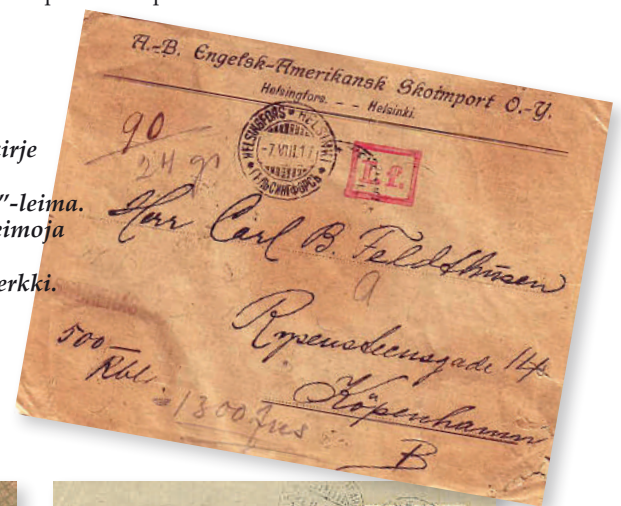 irje
"-leima.
eimoja
erkki.
A.-B. Engelsk-Amerikansk Skoimport O.-Y.
Helsingfors. - - Helsinki.
90
24 gr
HELSINGFORS * HELSINKI
-7.VIII.17
ГЕЛЬСИНГФОРСЪ
Herr Carl B. Feldthusen
a
Köpenhamn
B
500 -
Rbl.
= 1300 Fms